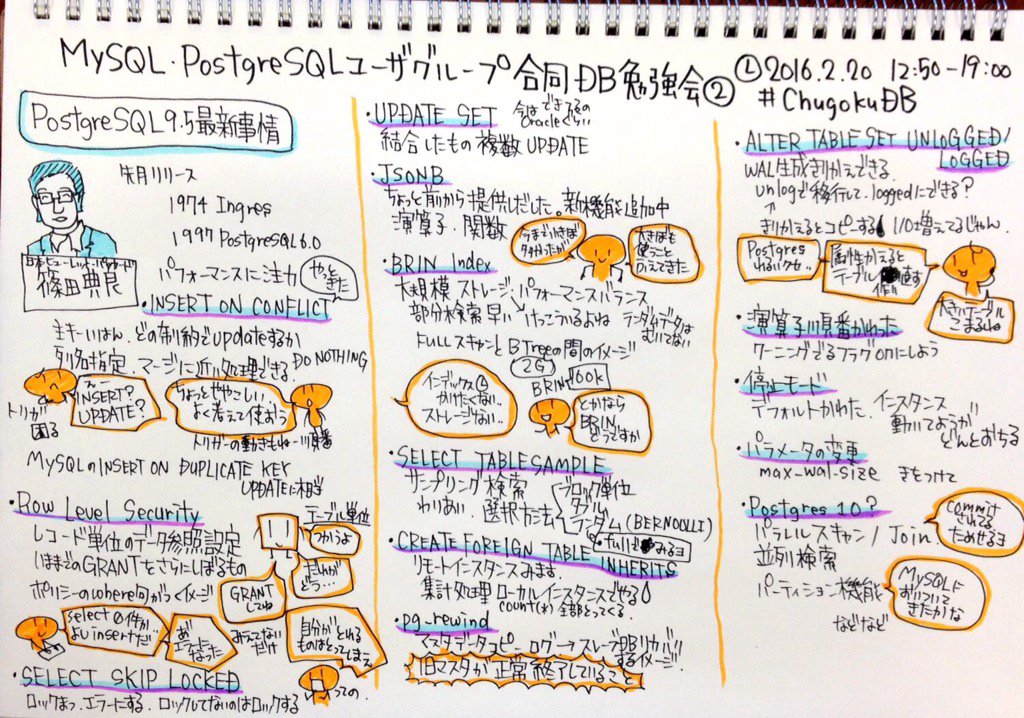 MySQL・PostgreSQLユーザグループ合同DB勉強会②
2016.2.20 12:50-19:00
#ChugokuDB
PostgreSQL9.5最新事情
先月リリース
1974 Ingres
1997 PostgreSQL6.0
日本ヒューレットパッカード
篠田典良
パフォーマンスに注力
やっときた
・INSERT ON CONFLICT
主キーいはん、どの制約でupdateするか
列名指定、マージに近い処理できる
DO NOTHING
えー
INSERT?
UPDATE?
トリガ
困る
ちょっとややこしい
よく考えて使おう
トリガーの動きもね…順番
MySQLのINSERT ON DUPLICATE KEY
UPDATEに相当
・Row Level Security
レコード単位のデータ参照設定
いままでのGRANTをさらにしぼるもの
ポリシーのwhere句がつくイメージ
テーブル単位
つかうよ
だれが
どう…
GRANT
してね
select 0件か
よしinsertだ…
あ
エラーになった
みえてない
だけ
自分がとれる
ものはとってしまえ
っての
・SELECT SKIP LOCKED
ロックまつ、エラーにする、ロックしてないのはロックする
・UPDATE SET
今はできてるの
Oracleぐらい
結合したもの複数UPDATE
・JSONB
ちょっと前から提供しだした。新機能追加中
演算子・関数
大きはも
使うこと
ふえてきた
・BRIN Index
大規模ストレージ、パフォーマンスバランス
部分検索早い
けっこういるよね
ランダムデータは
むいてない
FULLスキャンとBTreeの間のイメージ
2G
BRIN 160k
インデックス
かけたくない
ストレージない…
とかなら
BRIN
どうですか
・SELECT TABLESAMPLE
サンプリング検索
わりあい、選択方法
ブロック単位
タプル
ランダム(BERNOULLI)
fullでみるヨ
・CREATE FOREIGN TABLE INHERITS
リモートインスタンスみます
集計処理ローカルインスタンスでやる
count(*) 全部とってくる
・pg-rewind
マスタデータコピー ログ→スレーブDBリカバリ
するイメージ
旧マスタが正常終了していること
・ALTER TABLE SET UNLOGGED/
LOGGED
WAL生成きりかえできる
unlogで移行して、loggedにできる?
きりかえるとコピーする I/O増えてるじゃん
Postgres
わるいクセ…
属性かえると
テーブル作り直す
大きいテーブル
こまるね
・演算子順番かわった
ワーニングでるフラグonにしよう
・停止モード
デフォルトかわった、インスタンス
動いてようが
どんとおちる
・パラメータの変更
max-wal-size きをつけて
・Postgres 10?
パラレルスキャン/Join
並列検索
パーティション機能
などなど
commit
されてる
ためせるヨ
MySQLが
おいついて
きたかな